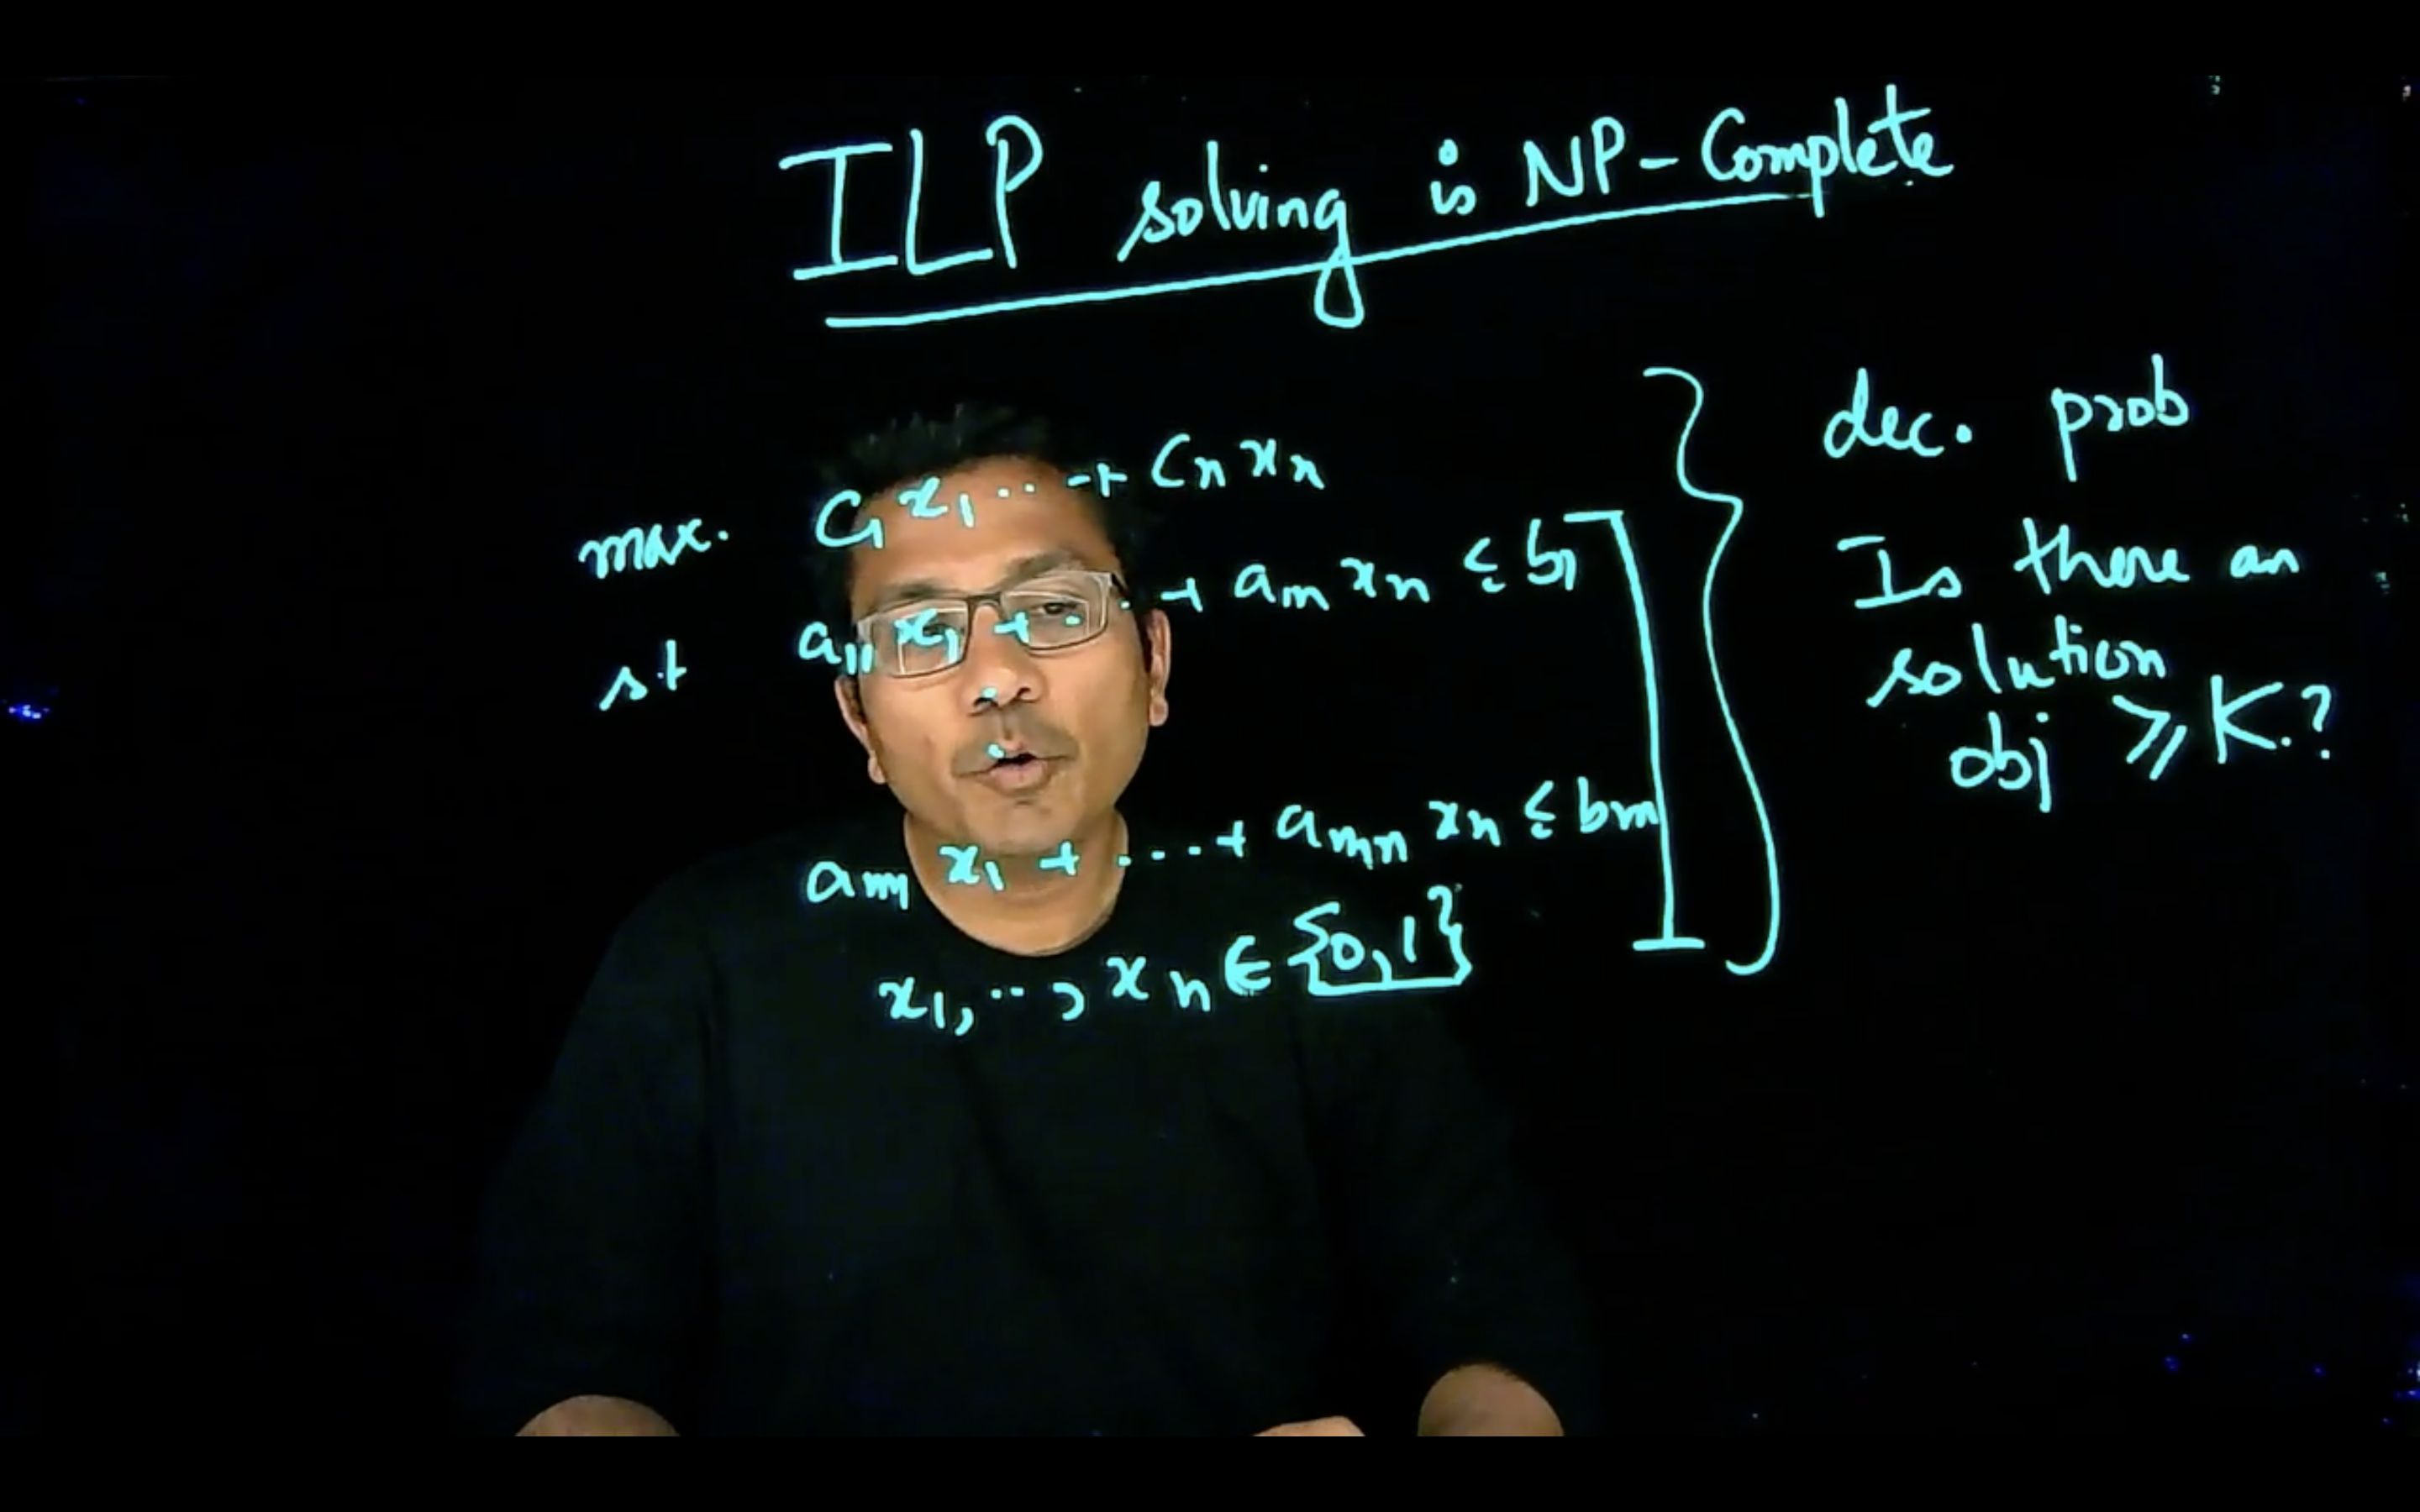 ILP solving is NP-Complete
max. C1 x1 .. + Cn xn
st a11 x1 + . . + a1n xn ≤ b1
am1 x1 + ... + amn xn ≤ bm
x1, .., xn ∈ {0,1}
dec. prob
Is there an
solution
obj ≥ K.?